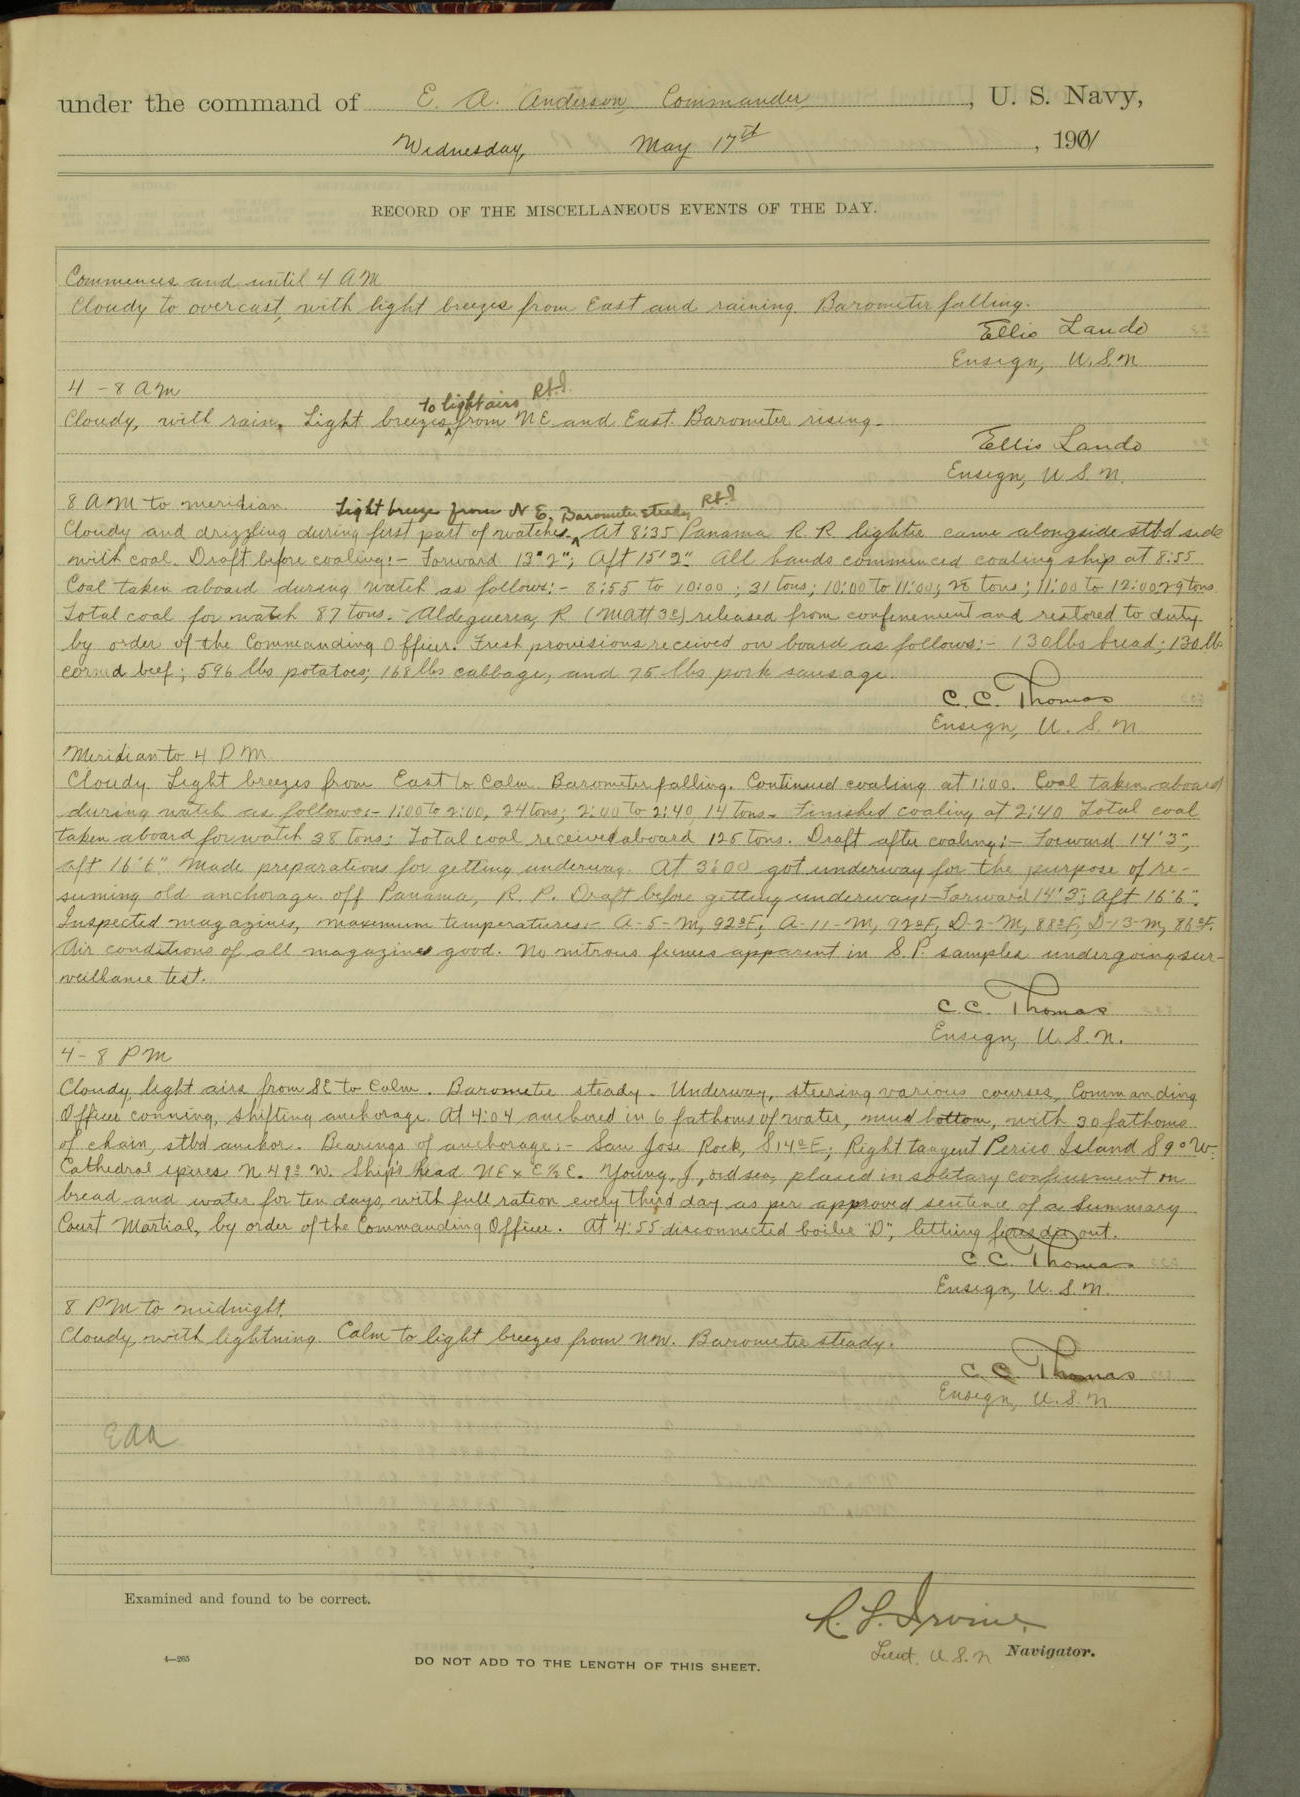 under the command of E. A. Anderson, Commander, U. S. Navy,
Wednesday, May 17th, 1911
RECORD OF THE MISCELLANEOUS EVENTS OF THE DAY.
Commences and until 4 A M
Cloudy to overcast, with light breezes from East and raining. Barometer falling.
Ellis Lando
Ensign, U.S.N
4 - 8 A M
to light airs R.L.I.
Cloudy, with rain. Light breezes from N E and East. Barometer rising.
Ellis Lando
Ensign, U.S.N.
8 A M to meridian.
Light breeze from N E, Barometer steady R.L.I
Cloudy and drizzling during first part of watches. At 8:35 Panama R. R. lighter came alongside stbd side
with coal. Draft before coaling:- Forward 13' 2"; Aft 15' 2". All hands commenced coaling ship at 8:55
Coal taken aboard during watch as follows:- 8:55 to 10:00; 31 tons; 10:00 to 11:00; tons; 11:00 to 12:00 29 tons.
Total coal for watch 87 tons. - Aldeguerea, R (Matt 3c) released from confinement and restored to duty
by order of the Commanding Officer. Fresh provisions received on board as follows:- 130 lbs bread; 130 lbs
corned beef; 596 lbs potatoes; 168 lbs cabbage; and 75 lbs pork sausage.
C. C. Thomas
Ensign, U. S. N
Meridian to 4 P M
Cloudy. Light breezes from East to Calm. Barometer falling. Continued coaling at 1:00. Coal taken aboard
during watch as follows:- 1:00 to 2:00, 24 tons; 2:00 to 2:40, 14 tons. Finished coaling at 2:40 Total coal
taken aboard for watch 38 tons: Total coal received aboard 125 tons. Draft after coaling:- Forward 14' 3",
aft 16' 6". Made preparations for getting underway. At 3:00 got underway for the purpose of re-
suming old anchorage off Panama, R. P. Draft before getting underway:- Forward 14' 3"; Aft 16' 6".
Inspected magazines, maximum temperatures:- A-5-M, 92°F; A-11-M, 92°F, D-2-M, 88°F, D-13-M, 86°F.
Air conditions of all magazines good. No nitrous fumes apparent in S. P. samples undergoing sur-
veillance test.
C. C. Thomas
Ensign, U. S. N.
4 - 8 P M
Cloudy, light airs from SE to Calm. Barometer steady. Underway, steering various courses, Commanding
Officer conning, shifting anchorage. At 4:04 anchored in 6 fathoms of water, mud bottom, with 30 fathoms
of chain, stbd anchor. Bearings of anchorage:- San Jose Rock, S14°E; Right tangent Perico Island S 9° W.
Cathedral spires N 49° W. Ship's head NE x E½E. Young, J, ord sea, placed in solitary confinement on
bread and water for ten days, with full ration every third day as per approved sentence of a Summary
Court Martial, by order of the Commanding Officer. At 4:55 disconnected boiler "D", letting fires die out.
C. C. Thomas
Ensign, U. S. N.
8 P M to midnight.
Cloudy, with lightning. Calm to light breezes from NW. Barometer steady.
C. C. Thomas
Ensign, U. S. N
EAA
Examined and found to be correct.
R. L. Irvine,
Lieut. U. S. N Navigator.
4—265
DO NOT ADD TO THE LENGTH OF THIS SHEET.